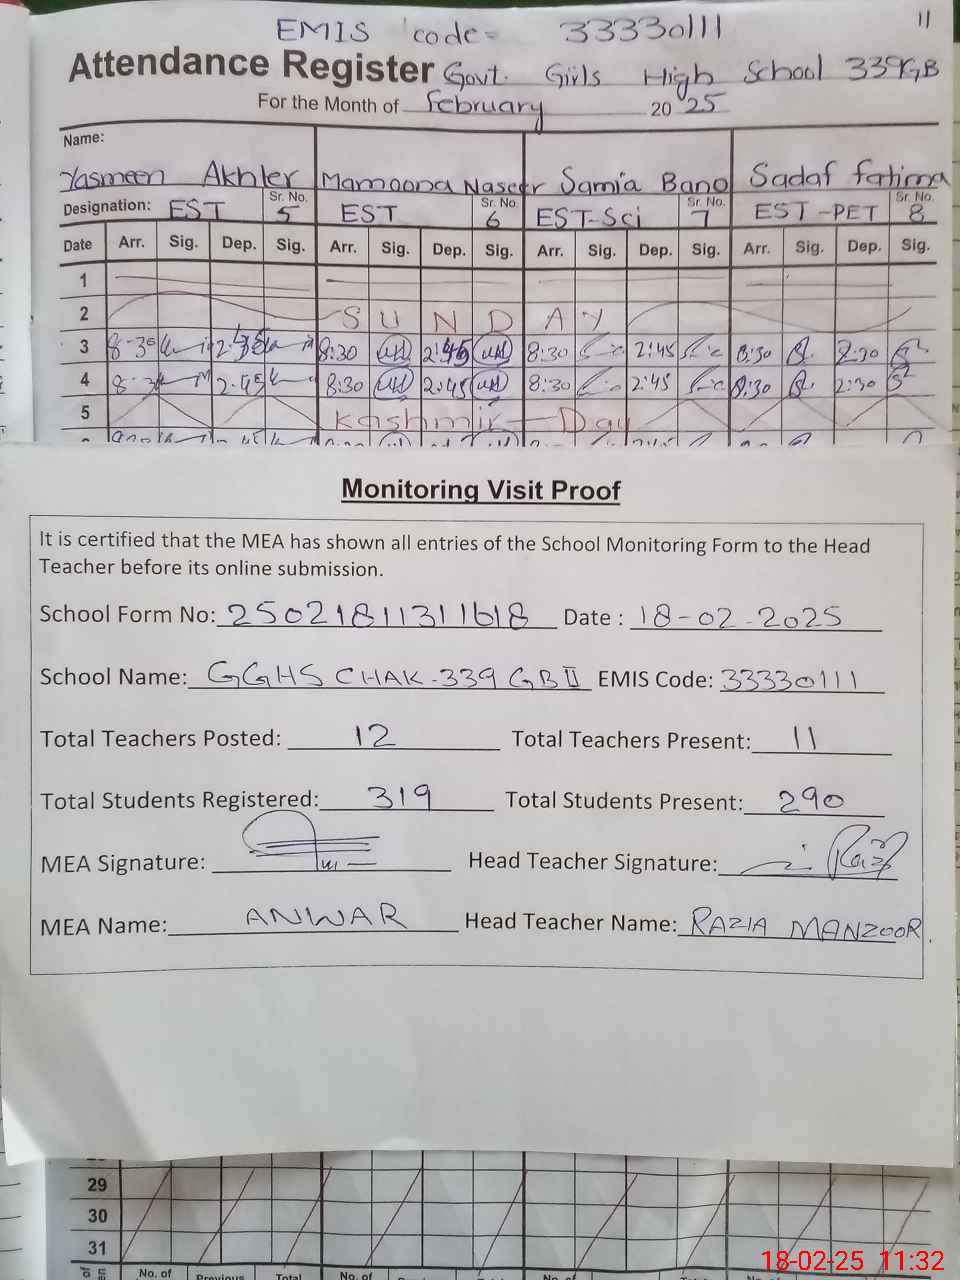 11
EMIS code= 33330111
Attendance Register Govt. Girls High School 339GB
For the Month of February 2025
Name:
Yasmeen Akhter Mamoona Naseer Samia Bano Sadaf Fatima
Designation: EST Sr. No. 5 EST Sr. No. 6 EST-Sci Sr. No. 7 EST-PET Sr. No. 8
Date Arr. Sig. Dep. Sig. Arr. Sig. Dep. Sig. Arr. Sig. Dep. Sig. Arr. Sig. Dep. Sig.
1
2 SUNDAY
3 8-30 8:30 2:45 8:30 2:45 8:30 2:30
4 8-30 2-45 8:30 2:45 8:30 2:45 8:30 2:30
5 Kashmir-Day
Monitoring Visit Proof
It is certified that the MEA has shown all entries of the School Monitoring Form to the Head
Teacher before its online submission.
School Form No: 25021811311618 Date : 18-02-2025
School Name: GGHS CHAK-339 GB II EMIS Code: 33330111
Total Teachers Posted: 12 Total Teachers Present: 11
Total Students Registered: 319 Total Students Present: 290
MEA Signature: Head Teacher Signature:
MEA Name: ANWAR Head Teacher Name: RAZIA MANZOOR.
29
30
31
No. of Previous Total No. of
18-02-25 11:32